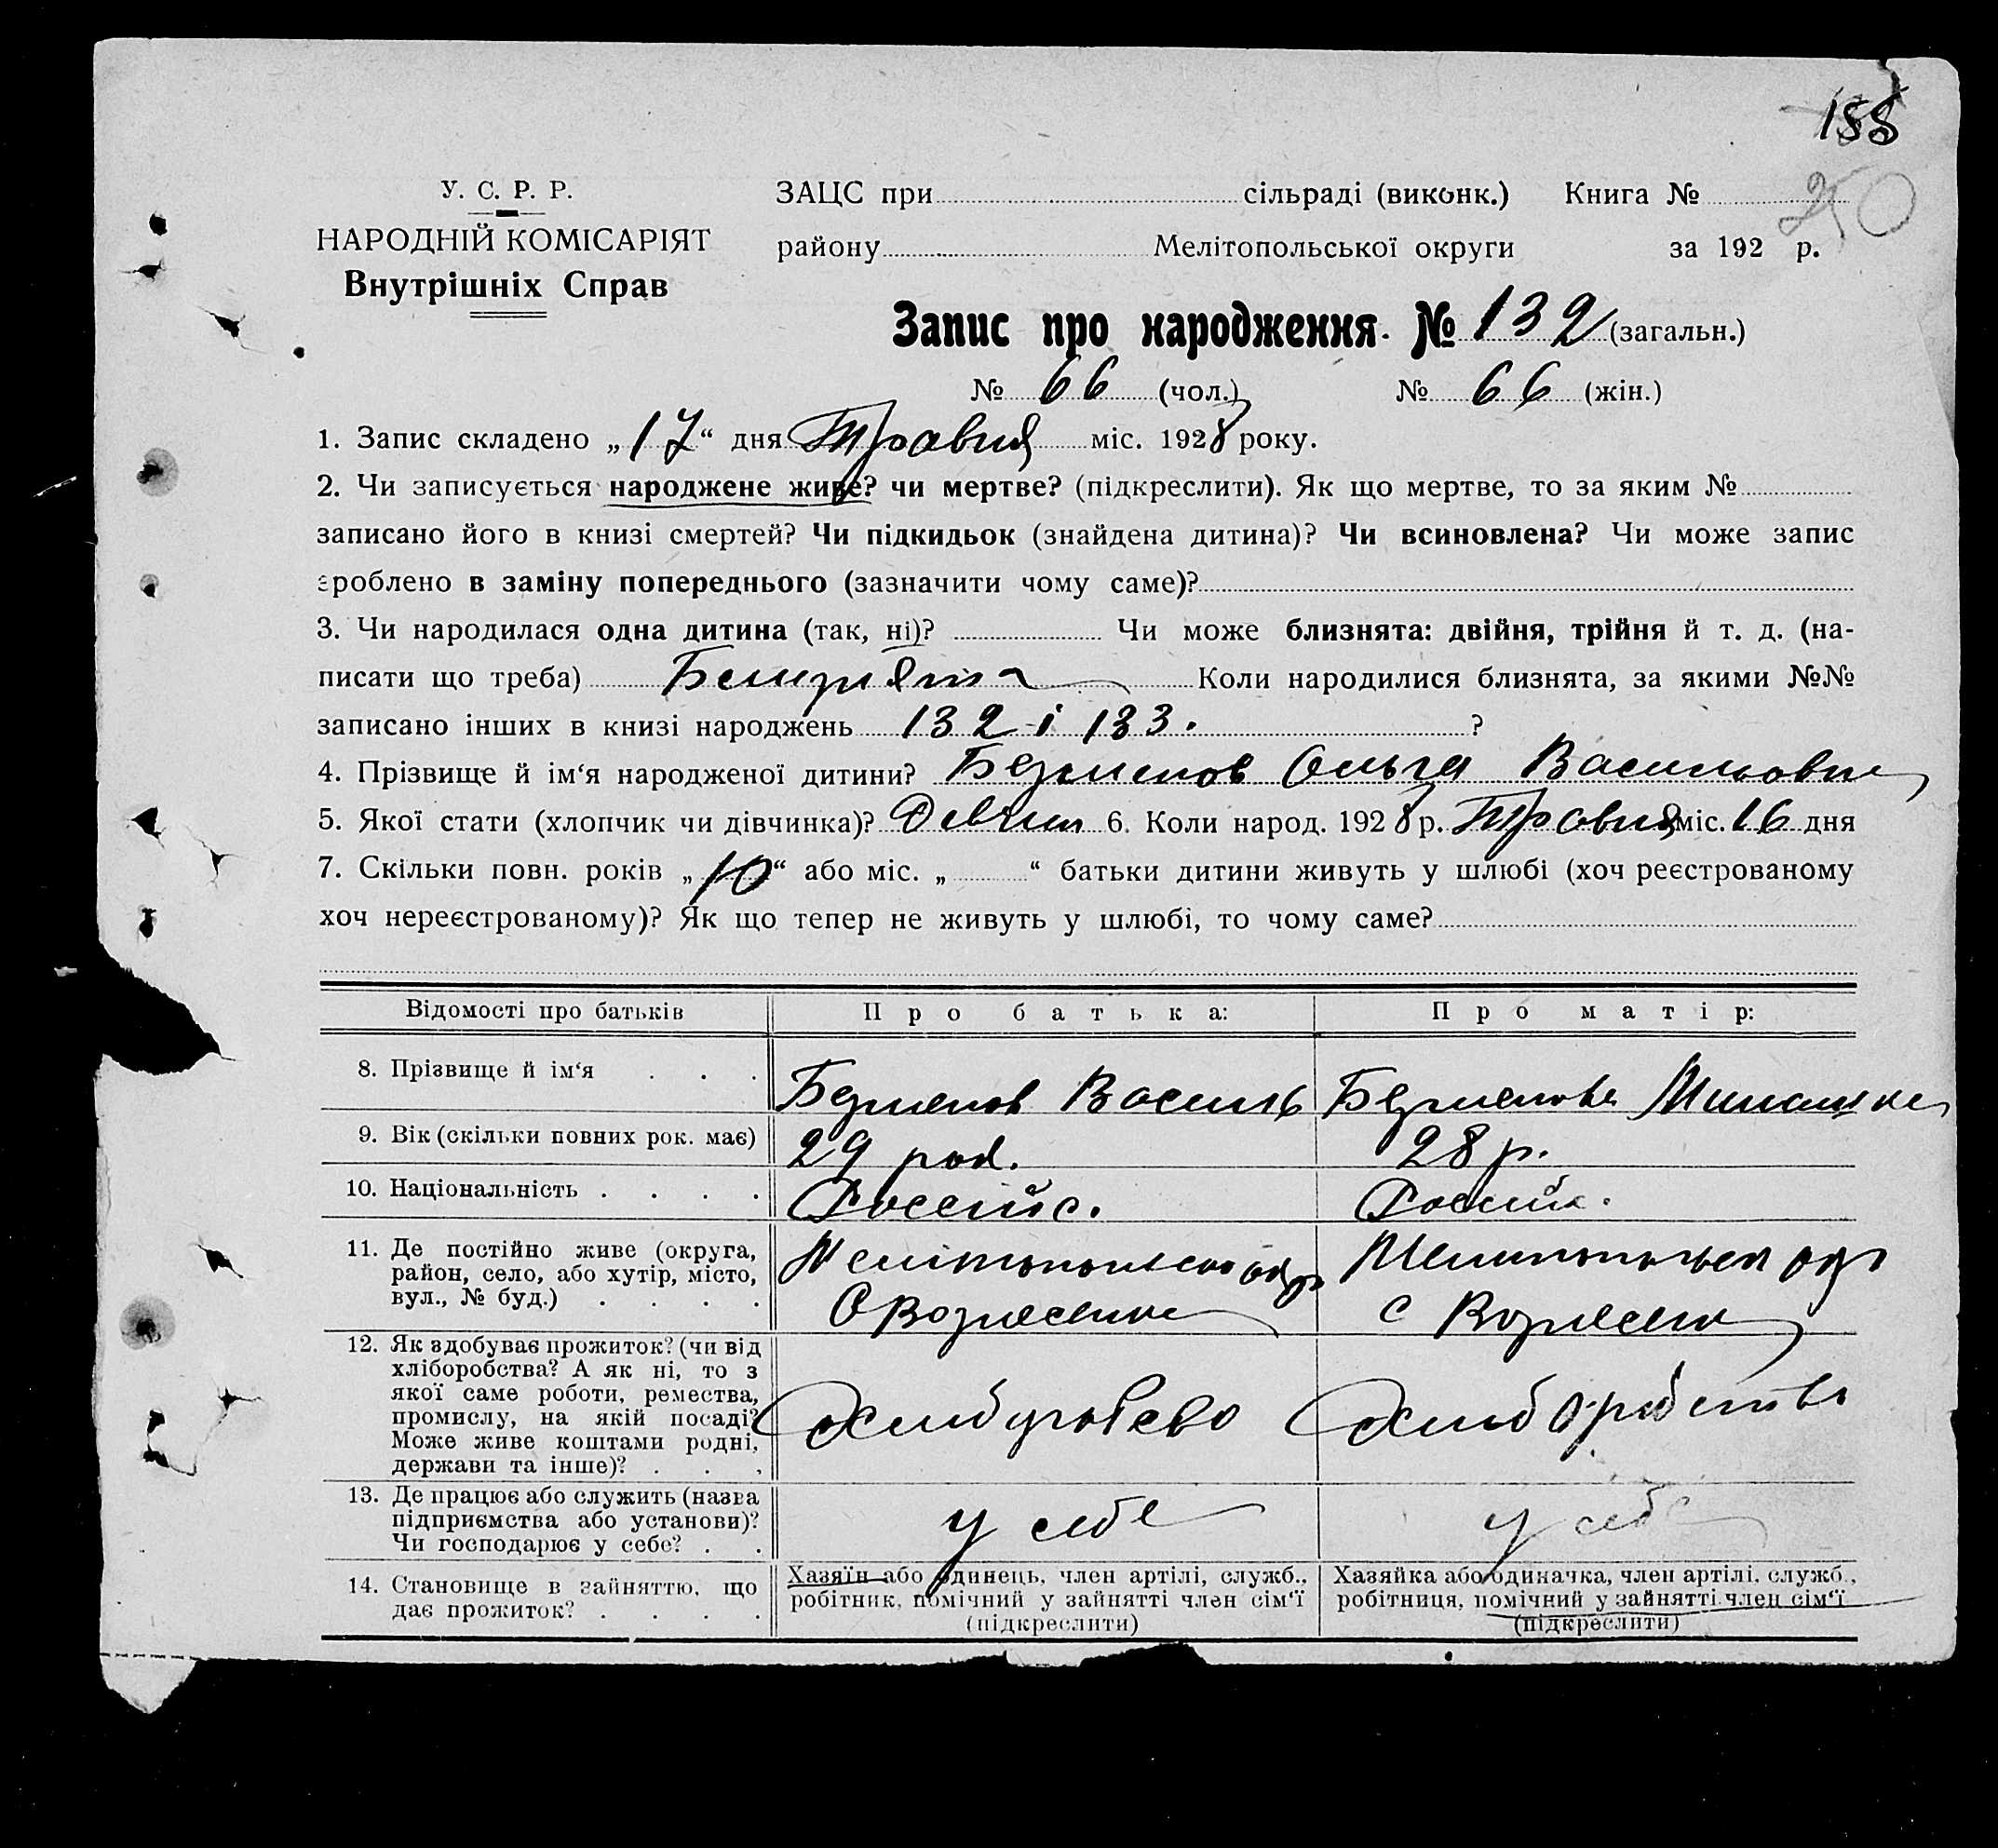 188
250
У. С. Р. Р.
НАРОДНІЙ КОМІСАРІЯТ
Внутрішніх Справ
ЗАЦС при сільраді (виконк.) Книга №
району Мелітопольської округи за 192 р.
Запис про народження. № 132 (загальн.)
№ 66 (чол.) № 66 (жін.)
1. Запис складено „17“ дня Травня міс. 1928 року.
2. Чи записується народжене живе? чи мертве? (підкреслити). Як що мертве, то за яким №
записано його в книзі смертей? Чи підкидьок (знайдена дитина)? Чи всиновлена? Чи може запис
зроблено в заміну попереднього (зазначити чому саме)?
3. Чи народилася одна дитина (так, ні)? Чи може близнята: двійня, трійня й т. д. (на-
писати що треба) Близнята Коли народилися близнята, за якими №№
записано інших в книзі народжень 132 і 133. ?
4. Прізвище й ім‘я народженої дитини? Ольга Васильовна
5. Якої стати (хлопчик чи дівчинка)? 6. Коли народ. 1928 р. Травня міс. 16 дня
7. Скільки повн. років „10“ або міс. „ “ батьки дитини живуть у шлюбі (хоч реєстрованому
хоч нереєстрованому)? Як що тепер не живуть у шлюбі, то чому саме?
Відомості про батьків Про батька: Про матір:
8. Прізвище й ім‘я . . . Василь
9. Вік (скільки повних рок. має) 29 рок. 28 р.
10. Національність . . . . Россійс. Россійс.
11. Де постійно живе (округа,
район, село, або хутір, місто,
вул., № буд.) . . . .
с Вознесенка с Вознесенк
12. Як здобуває прожиток? (чи від
хліборобства? А як ні, то з
якої саме роботи, ремества,
промислу, на якій посаді?
Може живе коштами родні,
держави та інше)? . . .
Хліборобство
13. Де працює або служить (назва
підприємства або установи)?
Чи господарює у себе? . .
у себе у себе
14. Становище в зайняттю, що
дає прожиток? . . . .
Хазяїн або одинець, член артілі, служб.,
робітник, помічний у зайнятті член сім‘ї
(підкреслити)
Хазяйка або одиначка, член артілі, служб.,
робітниця, помічний у зайнятті член сім‘ї
(підкреслити)